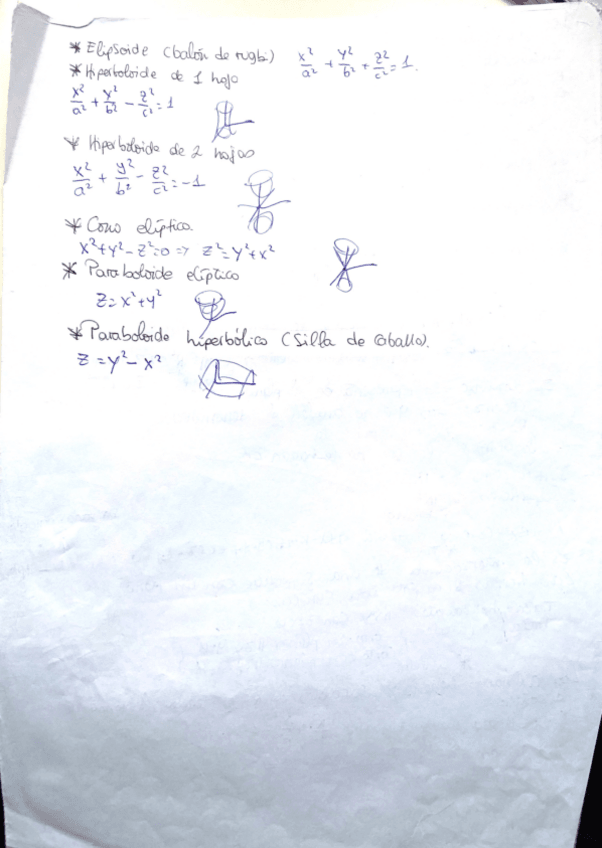 * Elipsoide (balón de rugbi) x²/a² + y²/b² + z²/c² = 1.
* Hiperboloide de 1 hoja
x²/a² + y²/b² - z²/c² = 1
* Hiperboloide de 2 hojas
x²/a² + y²/b² - z²/c² = -1
* Cono elíptico.
x² + y² - z² = 0 => z² = y² + x²
* Paraboloide elíptico
z = x² + y²
* Paraboloide hiperbólico (Silla de caballo).
z = y² - x²